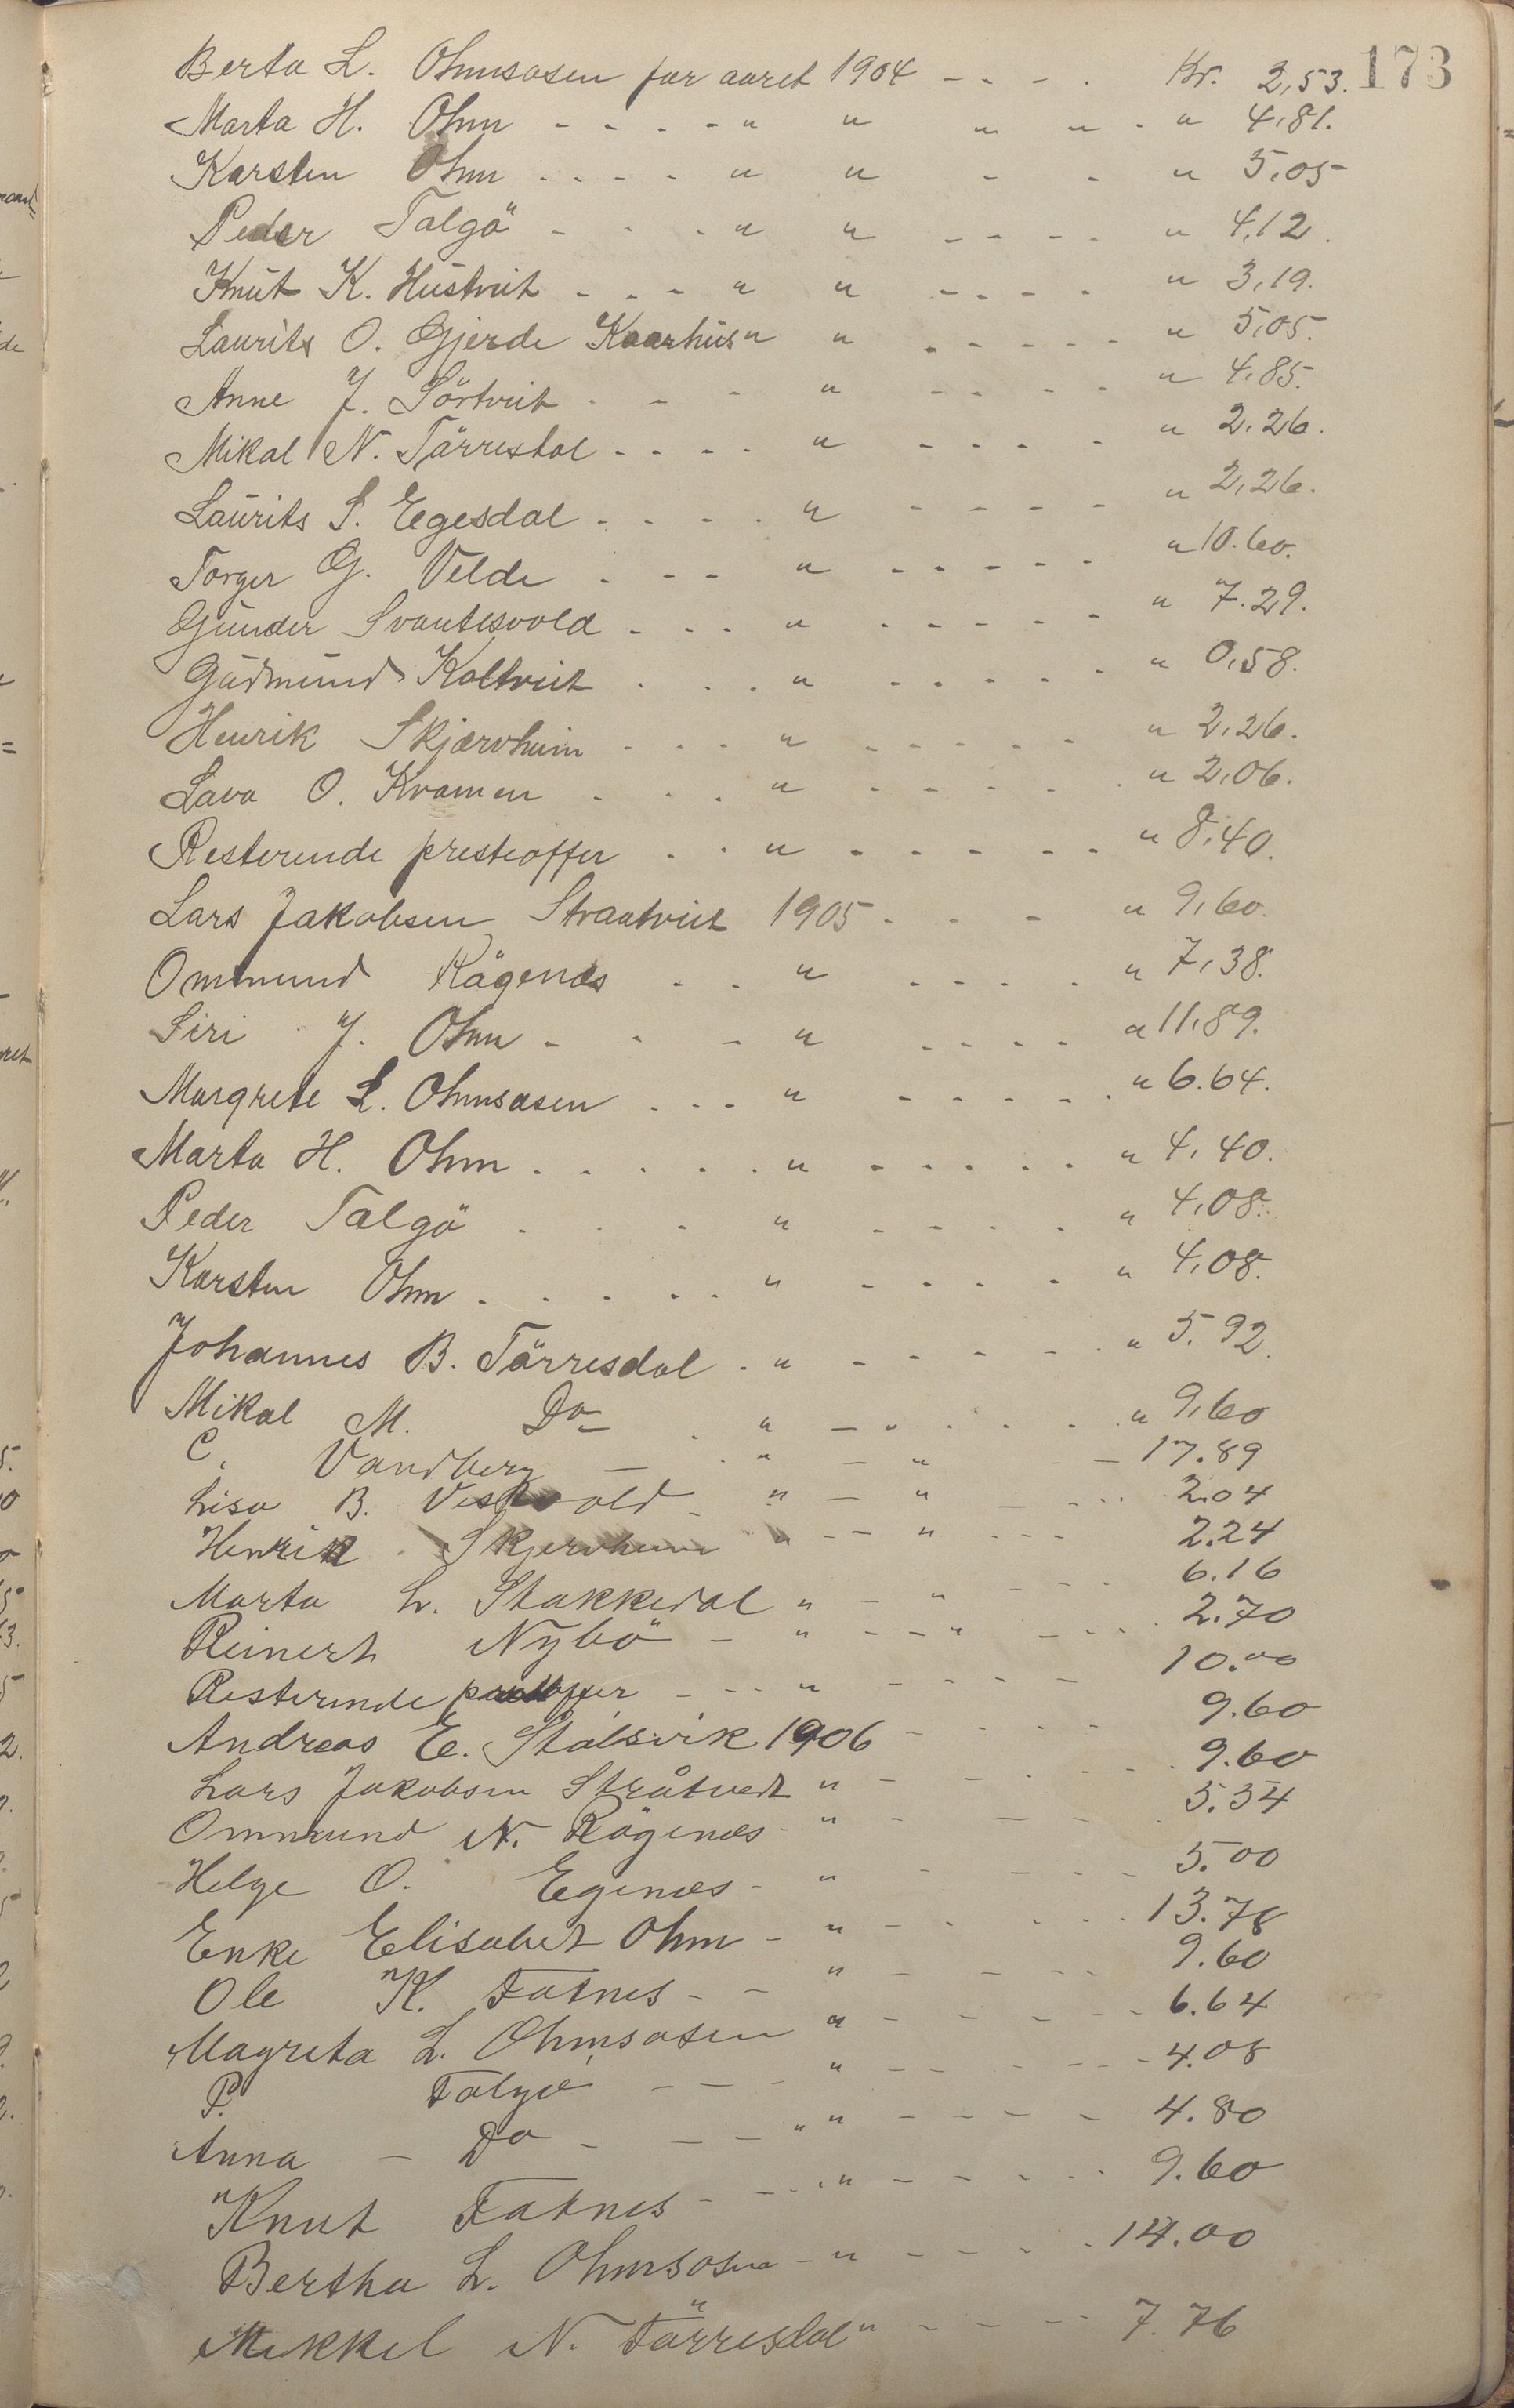 173
Berta L. Ohmsåsen for aaret 1904 - - - - Kr. 2,53.
Marta H. Ohm - - - - - " " " " - " 4,81.
Karsten Ohm - - - - " " - - " 5,05
Peder Talgö - - - " " - - - - " 4,12.
Knut K. Hustveit - - - " " - - - - " 3,19.
Laurits O. Gjerde Kaarhus " " - - - - - " 5,05.
Anne J. Sörtveit - - - " - - - - " 4,85.
Mikal N. Tärrestal - - - - " - - - - " 2,26.
Laurits S. Eegesdal - - - - " - - - - " 2,26.
Torger G. Velde - - - " - - - - - " 10.60.
Gunder Svantesvold - - - " - - - - - " 7.29.
Gudmund Koltveit - - - " - - - - - " 0,58.
Henrik Skjærvheim - - - " - - - - - " 2,26.
Lava O. Kvamen - - - " - - - - - " 2,06.
Resterende presteoffer - - " - - - - - - " 8,40.
Lars Jakobsen Straatveit 1905 - - - " 9,60.
Ommund Rägenæs - - " - - - - " 7,38.
Siri J. Ohm - - - " - - - - " 11,89.
Margrete L. Ohmsåsen - - - " - - - - - " 6.64.
Marta H. Ohm - - - - - " - - - - - " 4,40.
Peder Talgö - - - " - - - - - " 4,08.
Karsten Ohm - - - - - " - - - - " 4,08.
Johannes B. Tärresdal - " - - - - - - " 5.92.
Mikal M. Do - " - - - - - " 9,60
C. Vandberg - - " - " - 17.89
Lisa B. Vestvold - " - " - - - - 2.04
Henrik Skjervheim " - - " - - - 2.24
Marta L. Stakkedal " - " - - - 6.16
Reinert Nybö - " - - " - - - - 2.70
Resterende prestoffer - - - " - - - - - 10.00
Andreas E. Stølsvik 1906 - - - - 9.60
Lars Jakobsen Stråtvedt " - - - - - 9.60
Ommund N. Rägenæs - " - - - 5.34
Helge O. Egenæs - " - - - - 5.00
Enke Elisabet Ohm - " - - - - - 13.78
Ole K. Fatnes - - " - - - - 9.60
Magreta L. Ohmsåsen " - - - - - 6.64
P. Talgö - - - " - - - - - - 4.08
Anna - Do - - - " " - - - - 4.80
Knut Fatnes - - - " - - - - - - 9.60
Bertha L. Ohmsåsen - " - - - - - 14.00
Mikkel N. Tärresdal " - - - - - 7.76